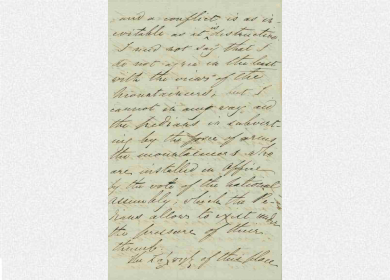 , and a conflict is as in-
evitable as it is destructive
I need not say that I
do not agree in the least
with the views of the
Mountaineers, but I
cannot in any way aid
the Pedians in subvert-
ing by the force of arms
the mountaineers who
are installed in office
by the vote of the national
Assembly, which the Pe-
dians allow to exist under
the pressure of their
thumb.
The of this place